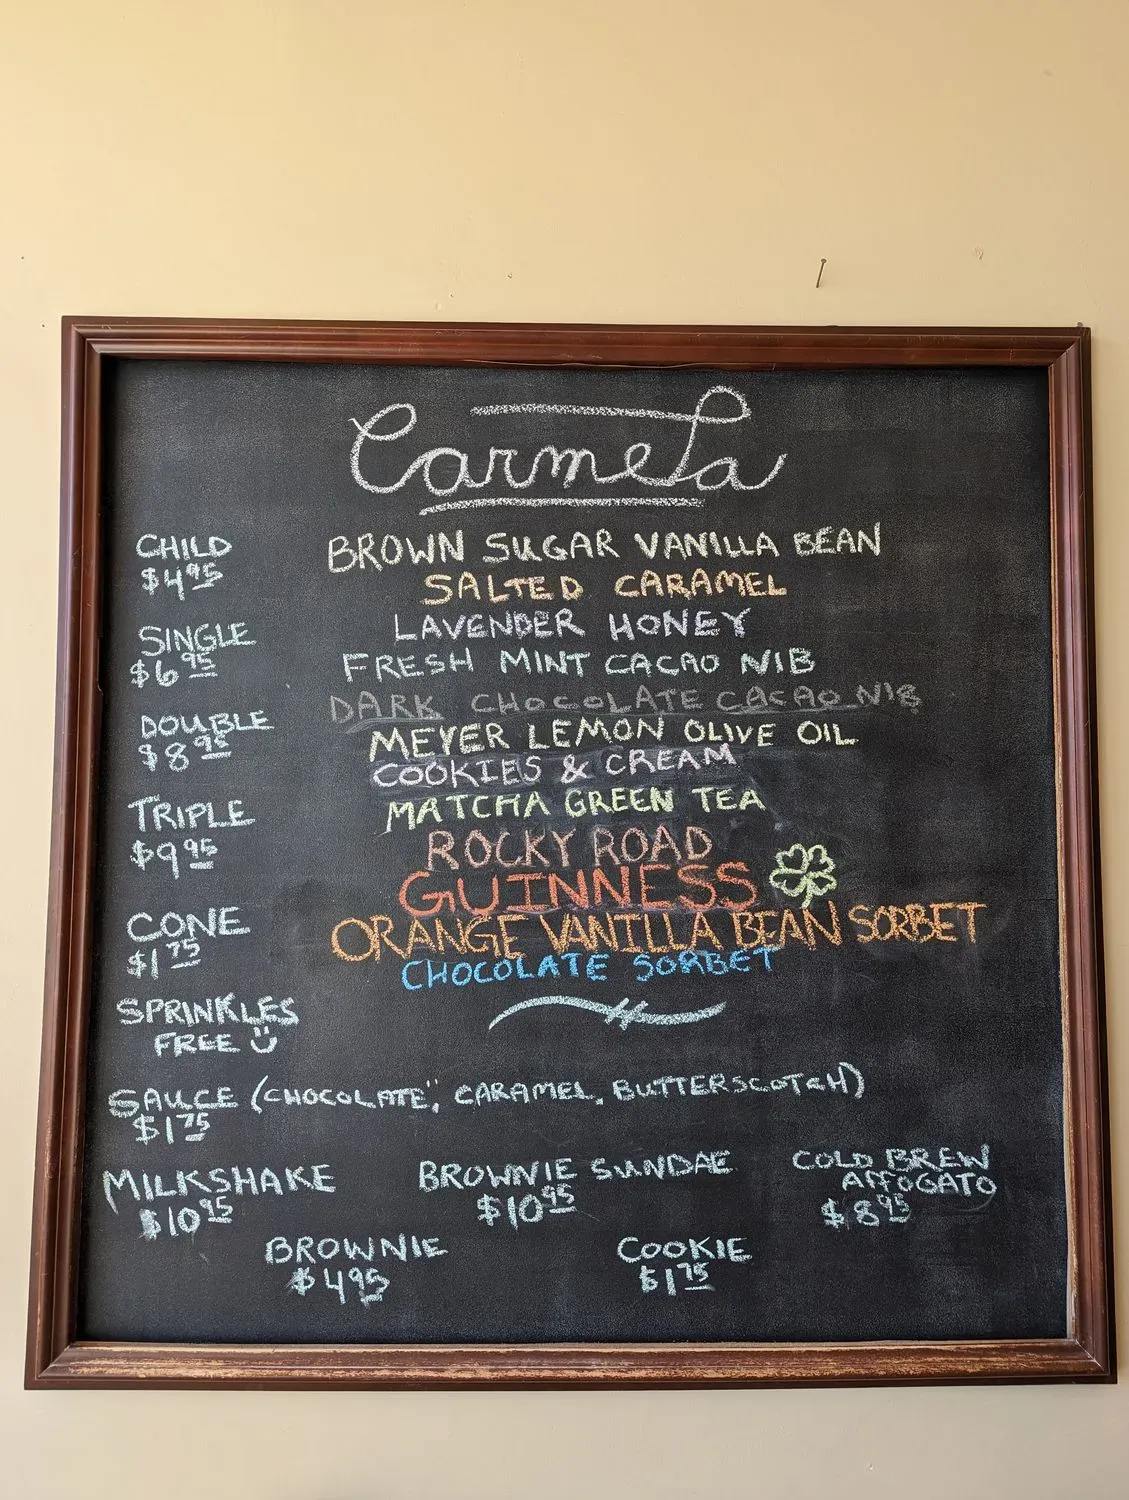 Carmela
CHILD
$4.95
SINGLE
$6.95
DOUBLE
$8.95
TRIPLE
$9.95
CONE
$1.75
SPRINKLES
FREE
BROWN SUGAR VANILLA BEAN
SALTED CARAMEL
LAVENDER HONEY
FRESH MINT CACAO NIB
DARK CHOCOLATE CACAO NIB
MEYER LEMON OLIVE OIL
COOKIES & CREAM
MATCHA GREEN TEA
ROCKY ROAD
GUINNESS
ORANGE VANILLA BEAN SORBET
CHOCOLATE SORBET
SAUCE (CHOCOLATE, CARAMEL, BUTTERSCOTCH)
$1.75
MILKSHAKE
$10.95
BROWNIE SUNDAE
$10.95
COLD BREW
AFFOGATO
$8.95
BROWNIE
$4.95
COOKIE
$1.75